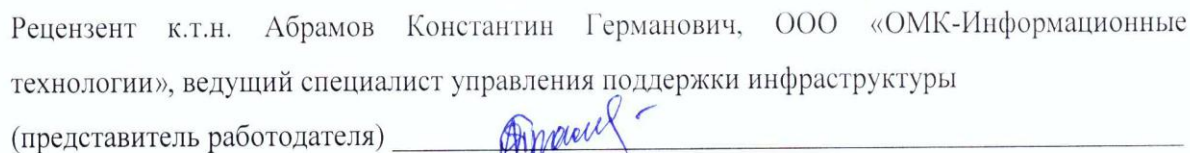 Рецензент к.т.н. Абрамов Константин Германович, ООО «ОМК-Информационные
технологии», ведущий специалист управления поддержки инфраструктуры
(представитель работодателя)